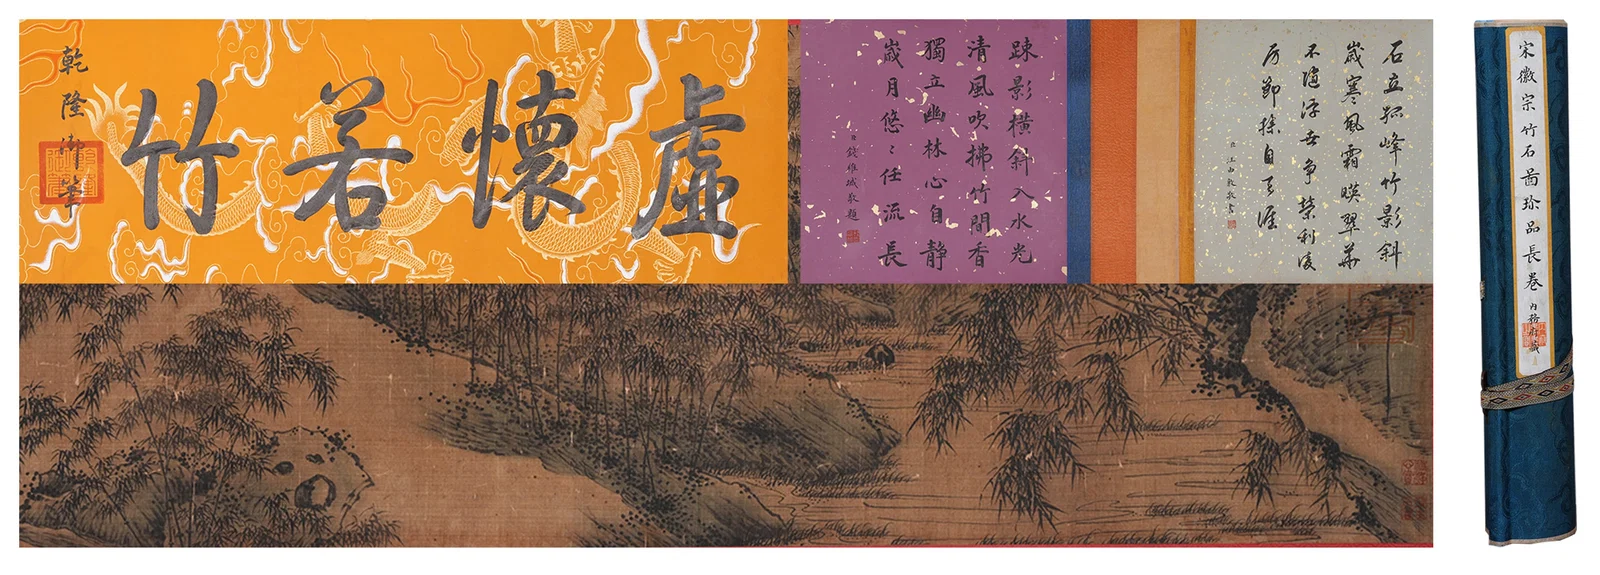 虛懷若竹
乾隆御筆
疎影橫斜入水光
清風吹拂竹間香
獨立幽林心自靜
歲月悠〻任流長
臣錢維城敬題
石立孤峰竹影斜
歲寒風霜暎翠華
不隨浮世爭榮利
節操自涯
臣汪由敦敬書
宋徽宗竹石啚珍品長卷
內務府藏